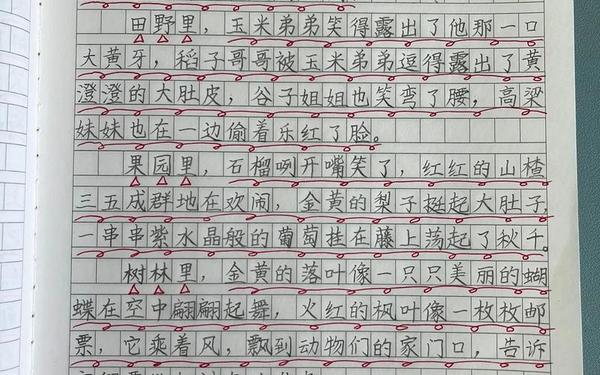 田野里，玉米弟弟笑得露出了他那一口
大黄牙，稻子哥哥被玉米弟弟逗得露出了黄
澄澄的大肚皮，谷子姐姐也笑弯了腰，高梁
妹妹也在一边偷着乐红了脸。
果园里，石榴咧开嘴笑了，红红的山楂
三五成群地在欢闹，金黄的梨子挺起大肚子，
一串串紫水晶般的葡萄挂在藤上荡起了秋千。
树林里，金黄的落叶像一只只美丽的蝴
蝶在空中翩翩起舞，火红的枫叶像一枚枚邮
票，它乘着风，飘到动物们的家门口，告诉